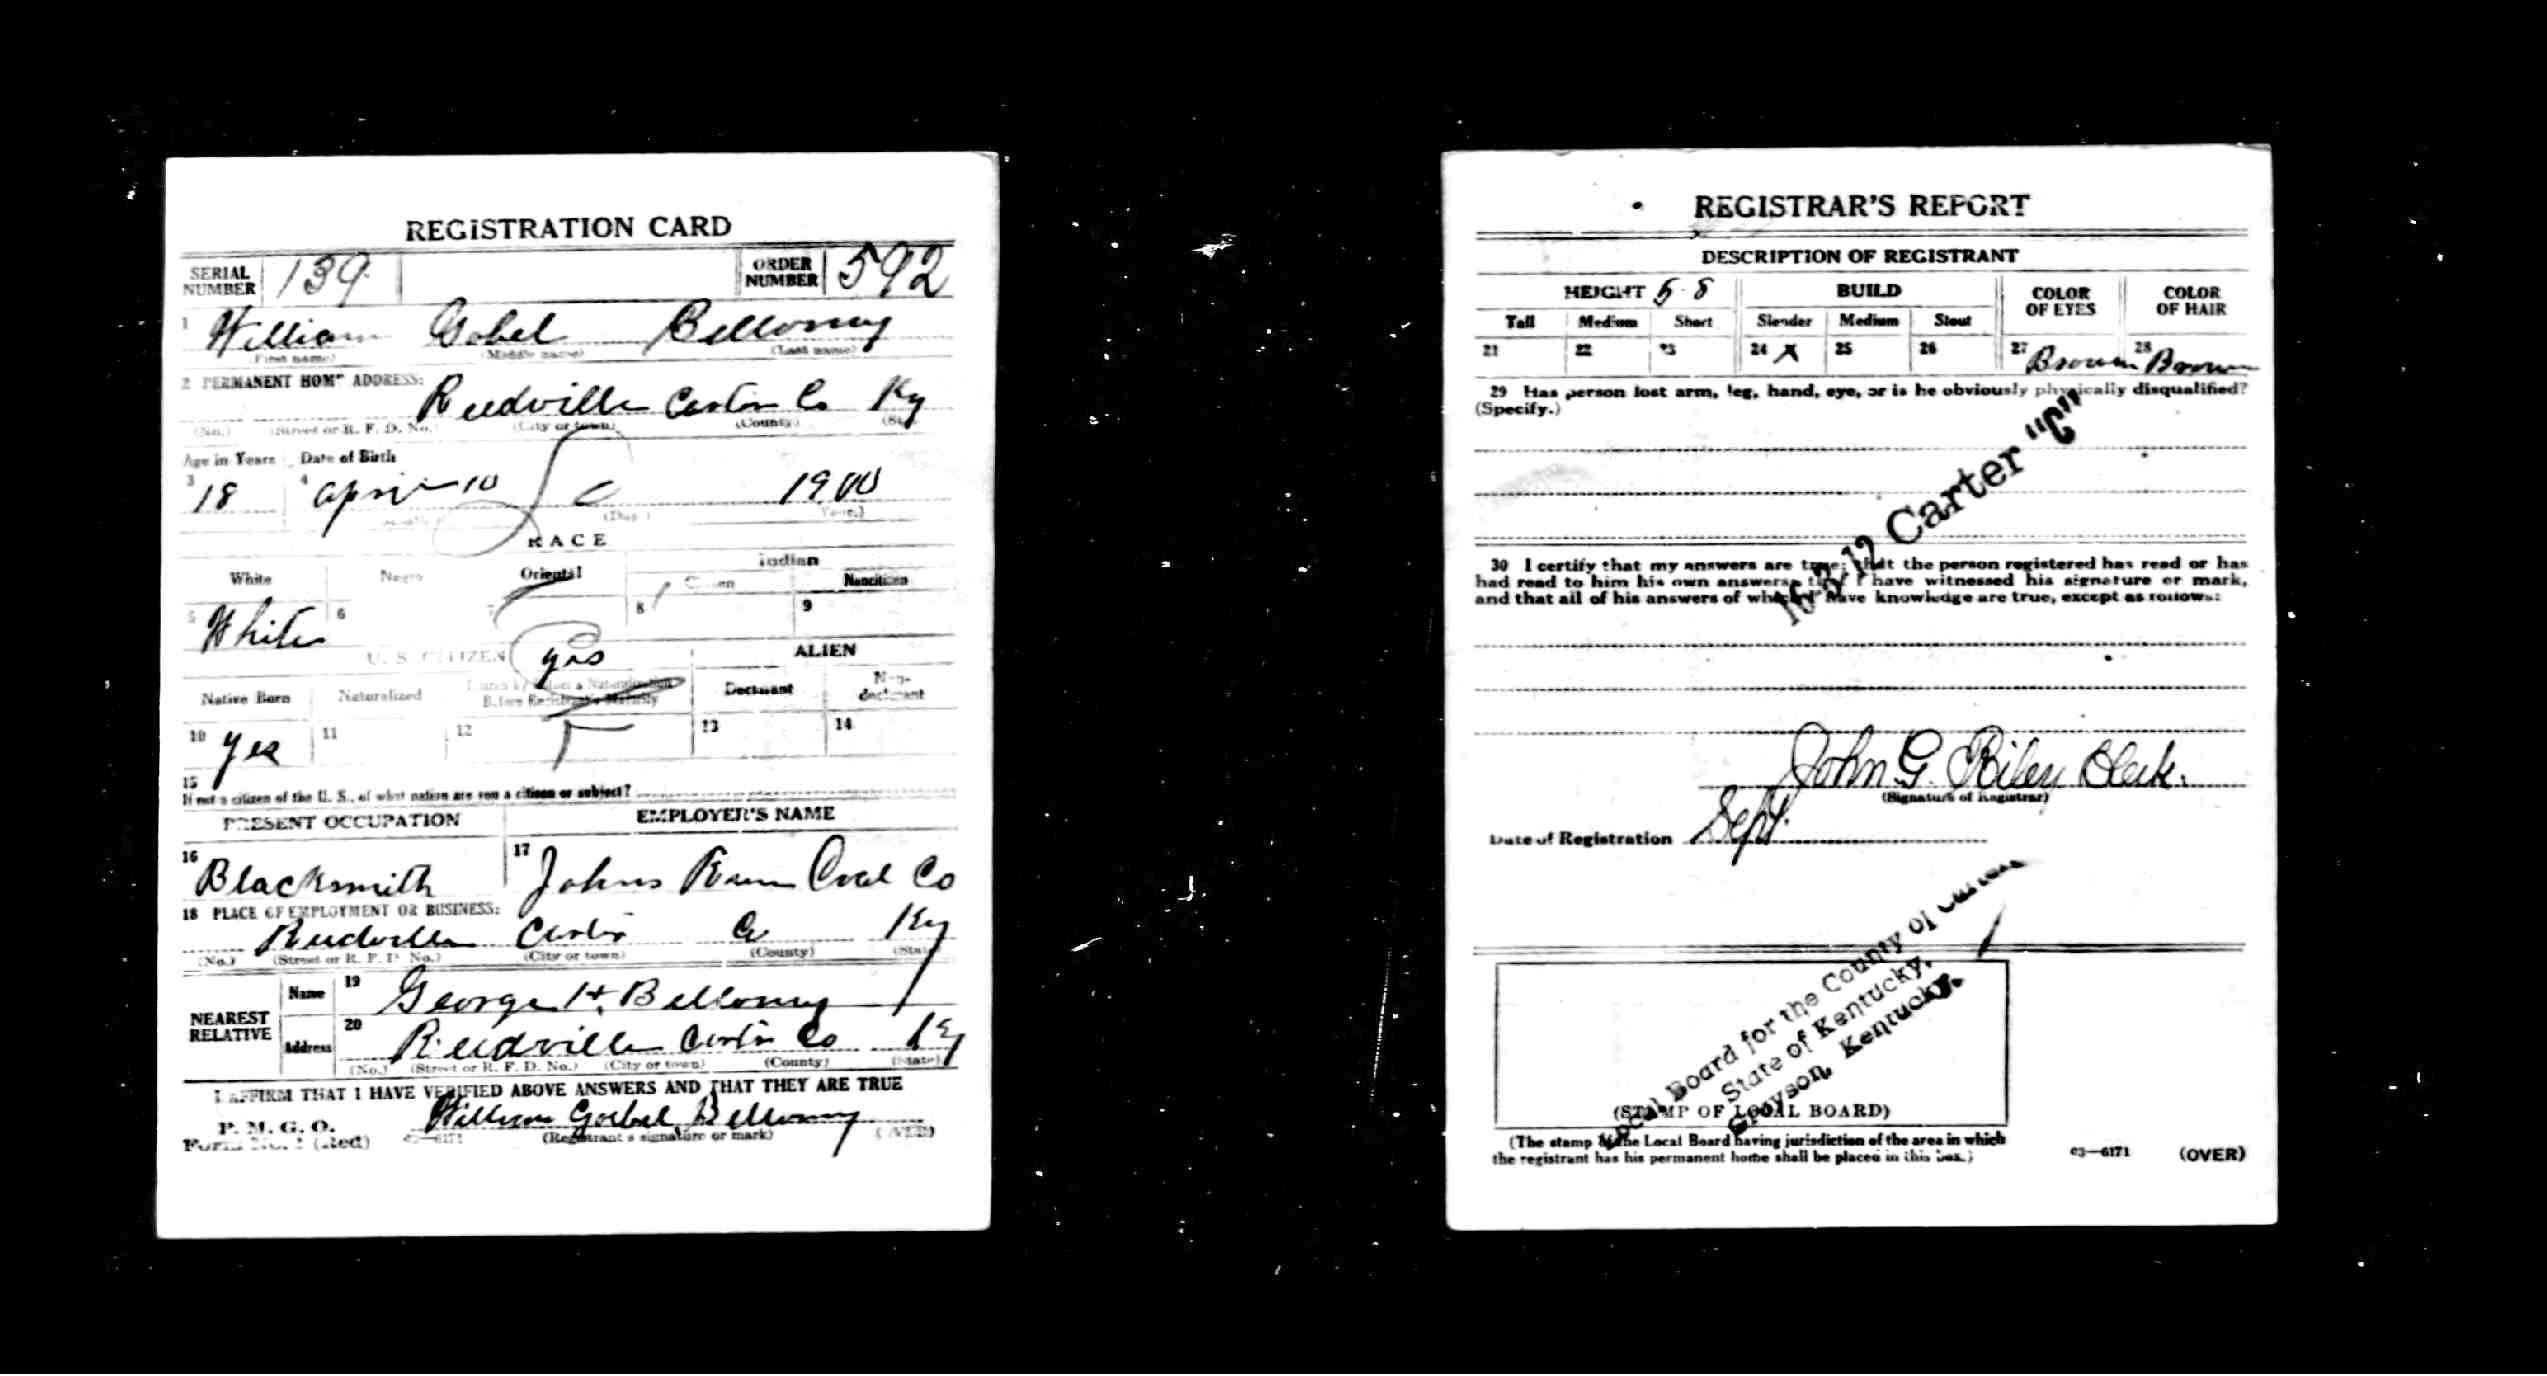 REGISTRATION CARD
SERIAL NUMBER 139 ORDER NUMBER 592
1 William Gobel Bellomy
(First name) (Middle name) (Last name)
2 PERMANENT HOME ADDRESS:
Reedville Carter Co Ky
(No.) (Street or R. F. D. No.) (City or town) (County)
Age in Years Date of Birth
3 18 4 April 10 1900
(Day) (Year)
RACE
White Negro Oriental Indian
Citizen Noncitizen
5 White 6 7 8 9
U. S. CITIZEN yes ALIEN
Native Born Naturalized Declarant Non-declarant
10 Yes 11 12 13 14
15
If not a citizen of the U. S., of what nation are you a citizen or subject?
PRESENT OCCUPATION EMPLOYER'S NAME
16 Blacksmith 17 Johns Run Coal Co
18 PLACE OF EMPLOYMENT OR BUSINESS:
Reedville Carter Co Ky
(No.) (Street or R. F. D. No.) (City or town) (County) (State)
NEAREST RELATIVE
Name 19 George H. Bellomy
Address 20 Reedville Carter Co Ky
(No.) (Street or R. F. D. No.) (City or town) (County) (State)
I AFFIRM THAT I HAVE VERIFIED ABOVE ANSWERS AND THAT THEY ARE TRUE
P. M. G. O.
Form No. 1 (Red) 03—6171 William Goebel Bellomy
(Registrant's signature or mark) (OVER)
REGISTRAR'S REPORT
DESCRIPTION OF REGISTRANT
HEIGHT 5-8 BUILD COLOR OF EYES COLOR OF HAIR
Tall Medium Short Slender Medium Stout
21 22 23 24 X 25 26 27 Brown 28 Brown
29 Has person lost arm, leg, hand, eye, or is he obviously physically disqualified?
(Specify.)
16-2-12 Carter "C"
30 I certify that my answers are true; that the person registered has read or has
had read to him his own answers; that I have witnessed his signature or mark,
and that all of his answers of which I have knowledge are true, except as follows:
John G. Riley Clerk.
(Signature of Registrar)
Date of Registration Sept.
Local Board for the County of Carter
State of Kentucky,
Grayson, Kentucky.
(STAMP OF LOCAL BOARD)
(The stamp of the Local Board having jurisdiction of the area in which
the registrant has his permanent home shall be placed in this box.)
03—6171 (OVER)